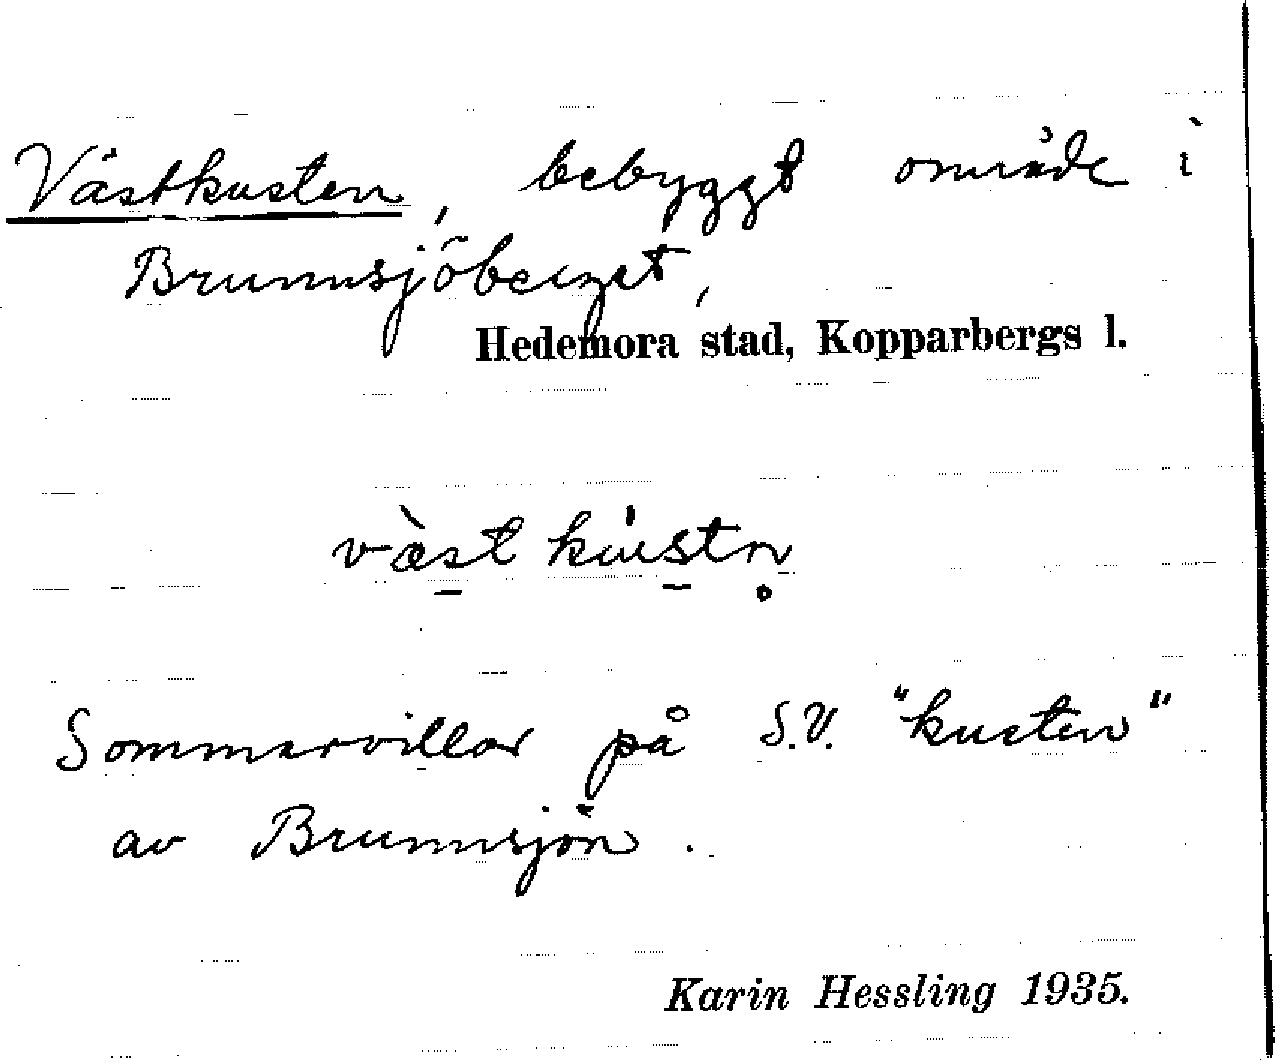 Västkusten, bebyggt område i
Brunnsjöberget,
Hedemora stad, Kopparbergs l.
væ̀st kùstn̥
Sommarvillor på S.V. "kusten"
av Brunnsjön.
Karin Hessling 1935.